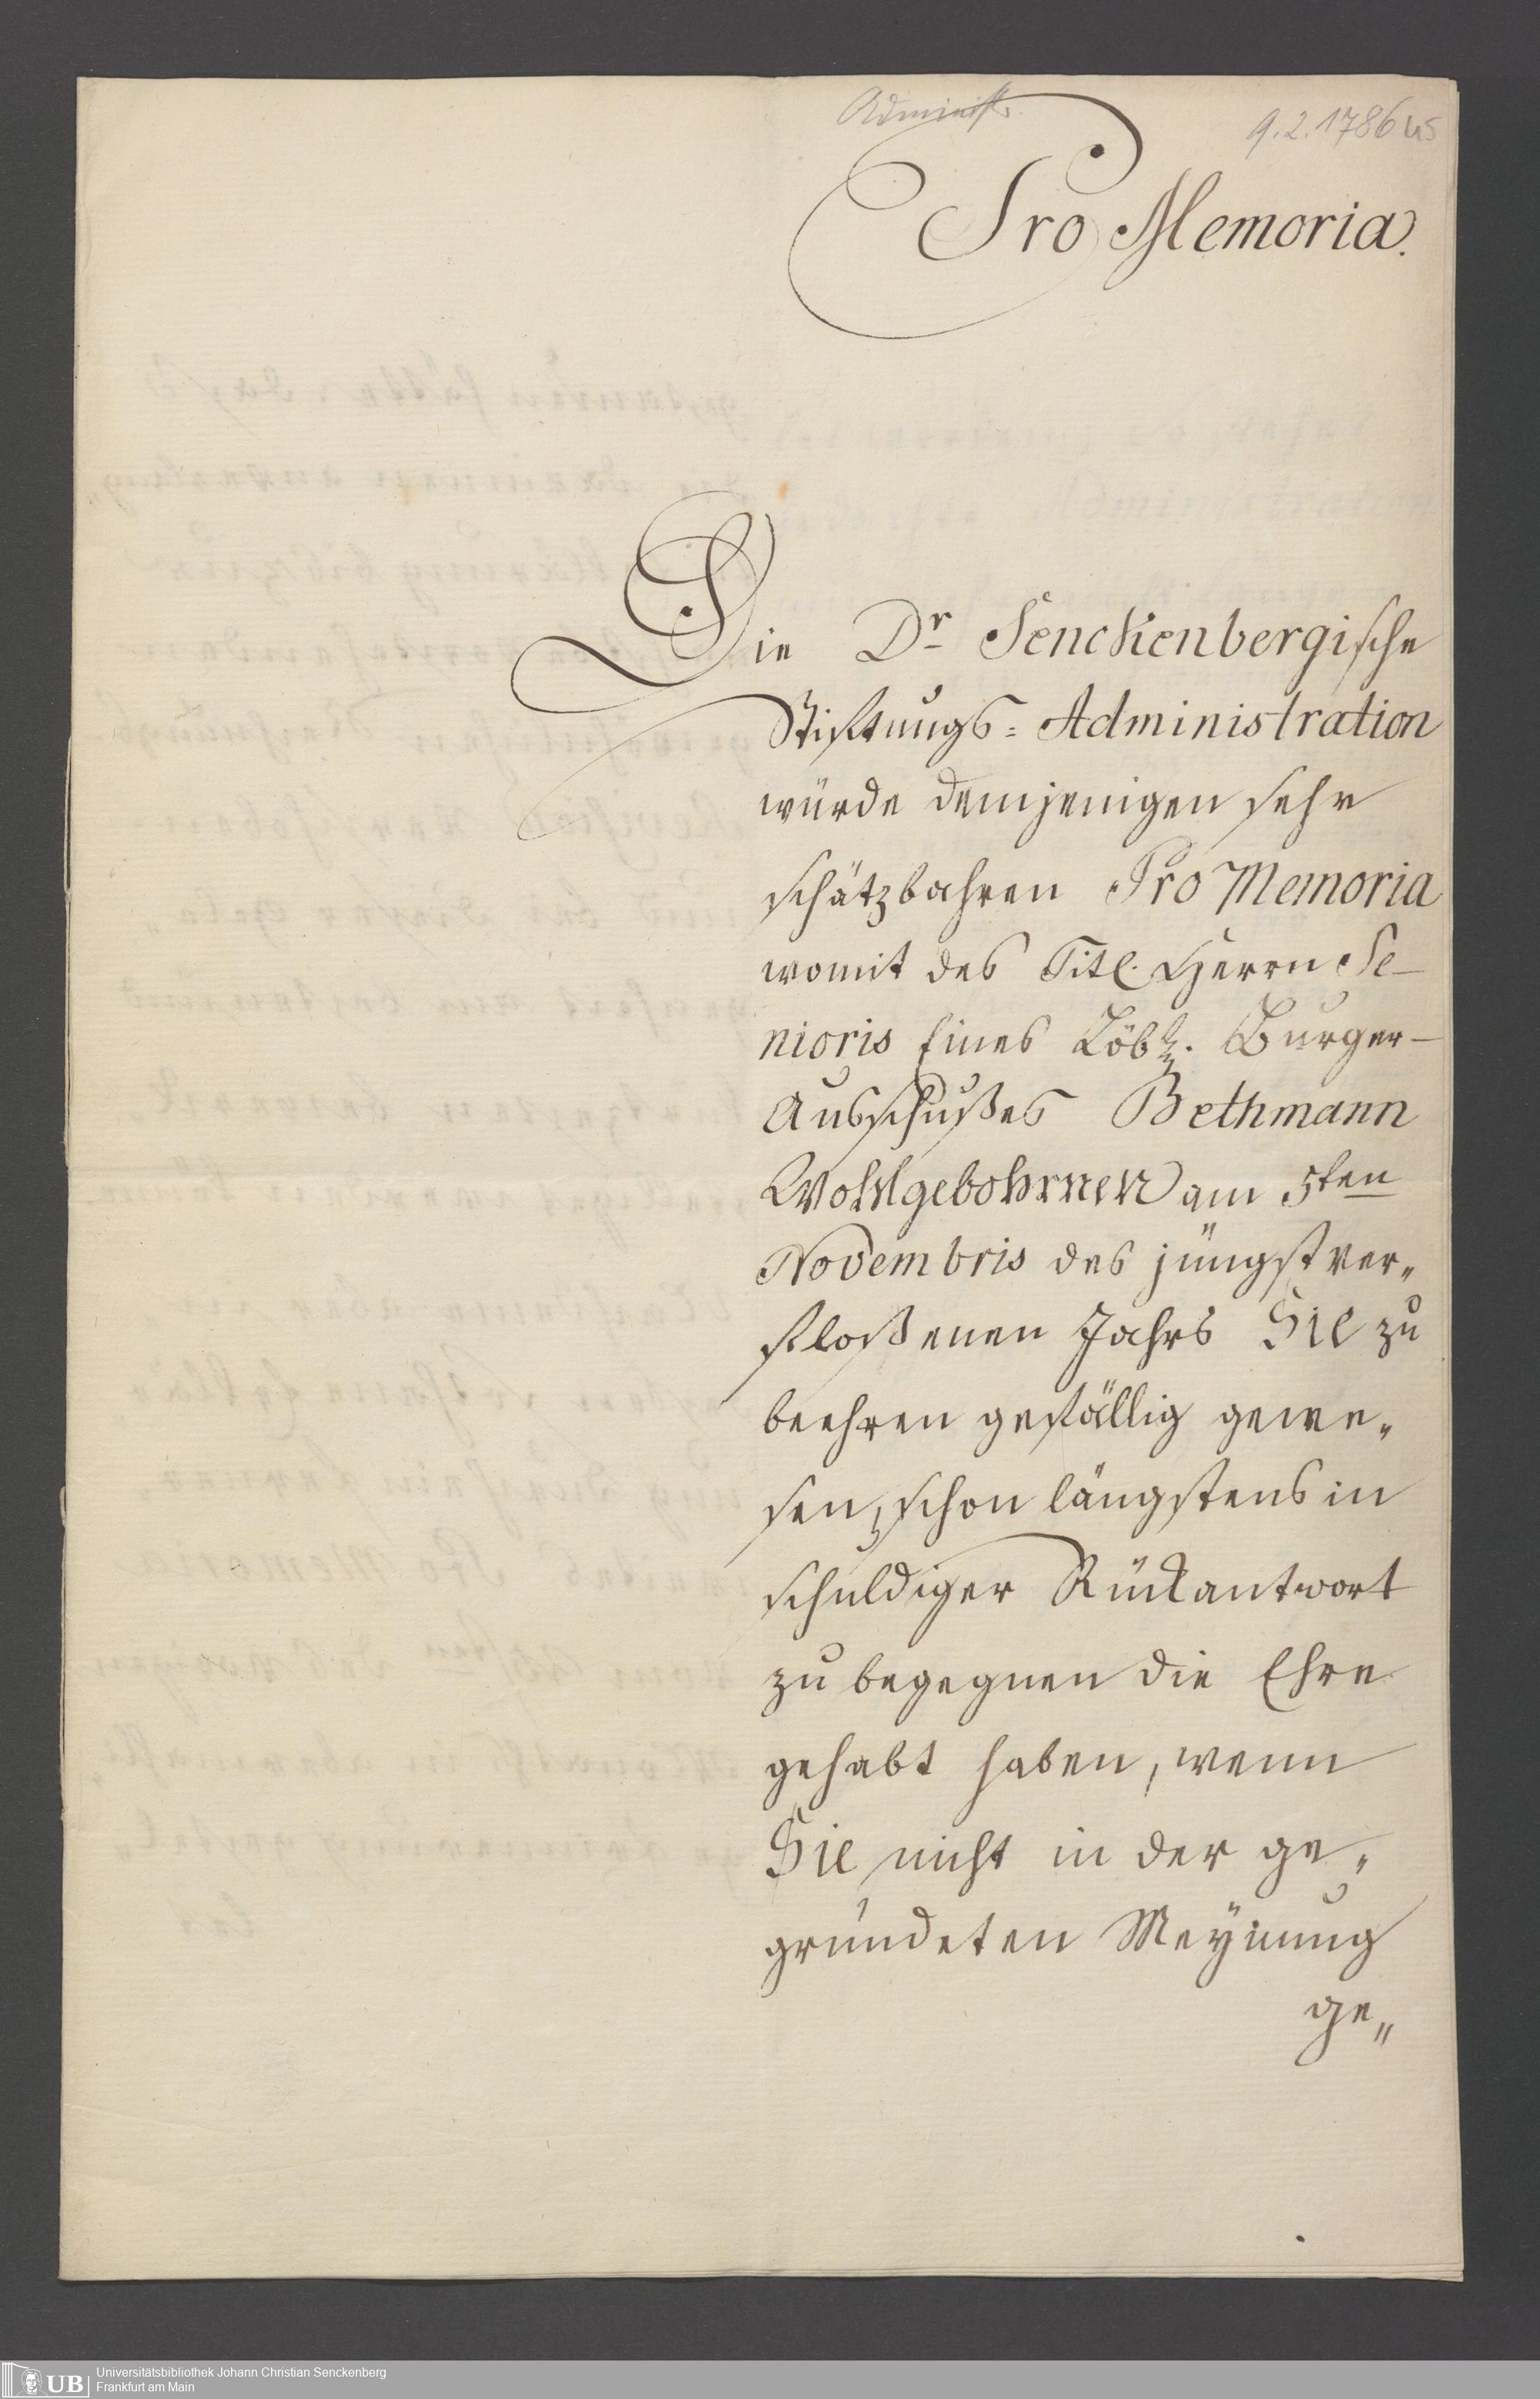 Administr.
9.2.1786 us
Pro Memoria.
Die Dr Senckenbergische
Stiftungs=Administration
würde demjenigen sehr
schätzbahren Pro Memoria
womit des Titl. Herrn Se-
nioris Eines Löbl. Burger-
Ausschußes Bethmann
Wohlgebohrnen am 5ten
Novembris des jüngst ver„
floßenen Jahrs Sie zu
beehren gefällig gewe„
sen, schon längstens in
schuldiger Rückantwort
zu begegnen die Ehre
gehabt haben, wenn
Sie nicht in der ge„
gründeten Meynung
ge„
UB
Universitätsbibliothek Johann Christian Senckenberg
Frankfurt am Main